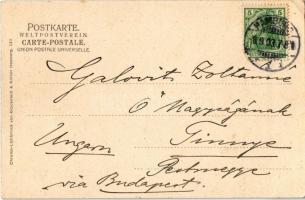 POSTKARTE.
WELTPOSTVEREIN.
CARTE-POSTALE.
UNION POSTALE UNIVERSELLE.
5 5
Galovits Zoltánné
Ő Nagyságának
Tinnye
Ungarn
Pestmegye
via Budapest.